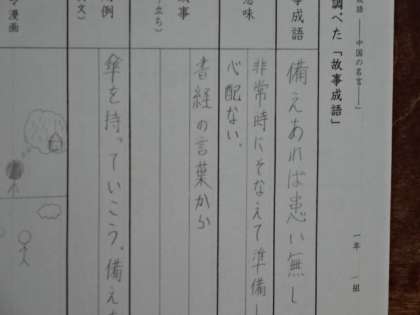 中国の名言――」
調べた「故事成語」
一年 一組
事成語
備えあれば患い無し
意味
非常時にそなえて準備し
心配ない。
故事
立ち)
書経の言葉から
例
文)
傘を持っていこう。備えあ
漫画